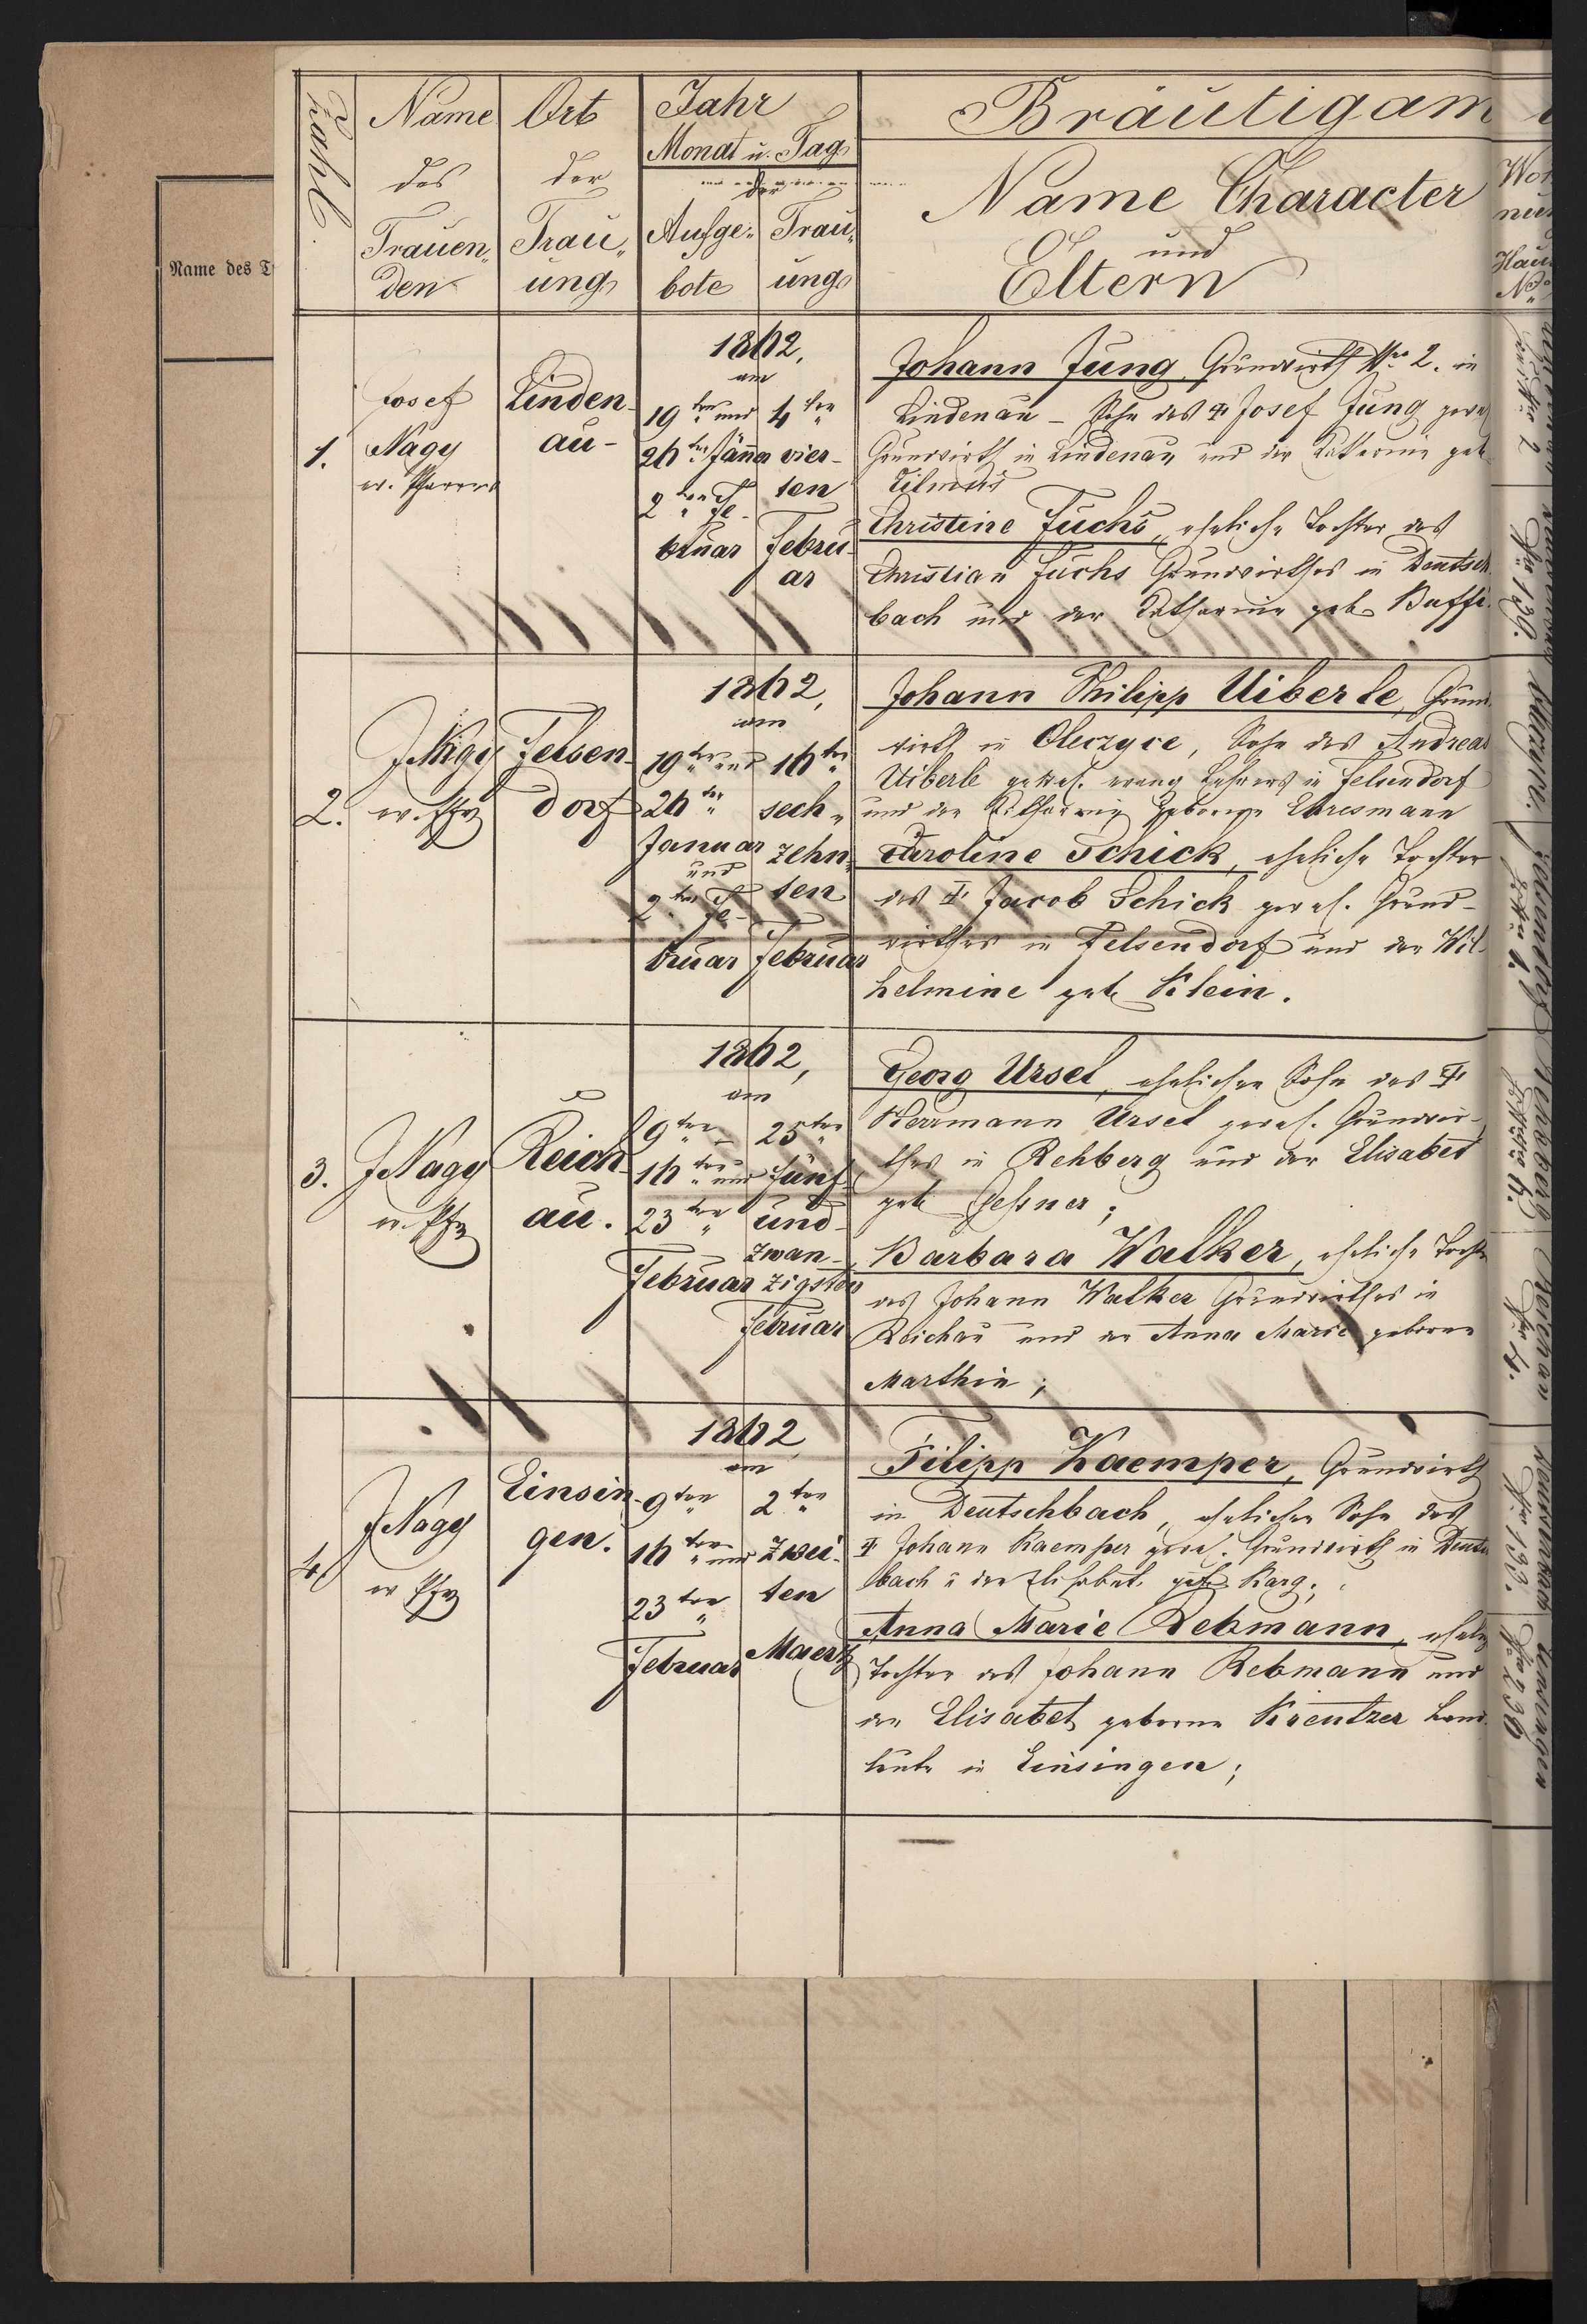 Zahl.
Name
des
Trauen„
den
Ort
der
Trau„
ung
Jahr
Monat u. Tag
der
Aufge„
bote
Trau„
ung
Bräutigam
Name Character
und
Eltern
Name des
1.
Josef
Nagy
ev. Pfarrer
Linden-
au-
1862,
am
19ten und
26ten Jänner
2ten Fe-
bruar
4ten
vier-
ten
Febru-
ar
Johann Jung, Grundwirth Nro 2. in
Lindenau - Sohn des Josef Jung gewes
Grundwirth in Lindenau und der Katharine geb
Christine Fuchs, eheliche Tochter des
Christian Fuchs Grundwirthes in Deutsch
bach und der Katharine geb
2.
J Nagy
ev. Pfr
Felsen-
dorf
1862,
am
19ten und
26ten
Januar
und
2ten Fe-
bruar
16ten
sech„
zehn„
ten
Februar
Johann Philipp Uiberle, Grund
wirth in Oleczyce, Sohn des Andreas
Uiberle gewes. evang Lehrers in Felsendorf
und der Katharina geborene Ehresmann
Caroline Schick, eheliche Tochter
des Jacob Schick gewes. Grund-
wirthes in Felsendorf und der Wil-
helmine geb Klein.
3.
J Nagy
ev. Pfr
Reich-
au.
1862,
am
9ten
16ten und
23ten
Februar
25ten
fünf-
und-
zwan-
zigsten
Februar
Georg Ursel, ehelicher Sohn des
Herrmann Ursel gewes. Grundwir-
thes in Rehberg und der Elisabet
geb Gessner;
Barbara Walker, eheliche Tochter
des Johann Walker Grundwirthes in
Reichau und der Anna Marie geborne
Marthin;
4.
J Nagy
ev Pfr
Einsin-
gen.
1862
am
9ten
16ten und
23ten
Februar
2ten
Zwei-
ten
Maerz
Filipp Kaemper, Grundwirth
in Deutschbach, ehelicher Sohn des
Johann Kaemper gewes. Grundwirth in Deutsch
bach u der Elisabet geb. Karg;
Anna Marie Rebmann, ehel
Tochter des Johann Rebmann und
der Elisabet geborne Kreutzer Land
leute in Einsingen;